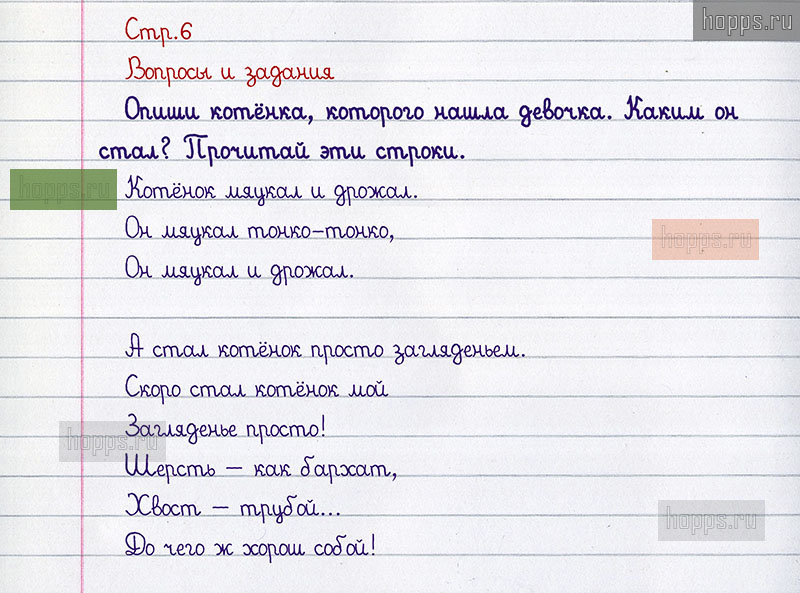 hopps.ru
Стр.6
Вопросы и задания
Опиши котёнка, которого нашла девочка. Каким он
стал? Прочитай эти строки.
hopps.ru
Котёнок мяукал и дрожал.
Он мяукал тонко-тонко,
hopps.ru
Он мяукал и дрожал.
А стал котёнок просто загляденьем.
Скоро стал котёнок мой
Загляденье просто!
hopps.ru
Шерсть – как бархат,
Хвост – трубой...
hopps.ru
До чего ж хорош собой!